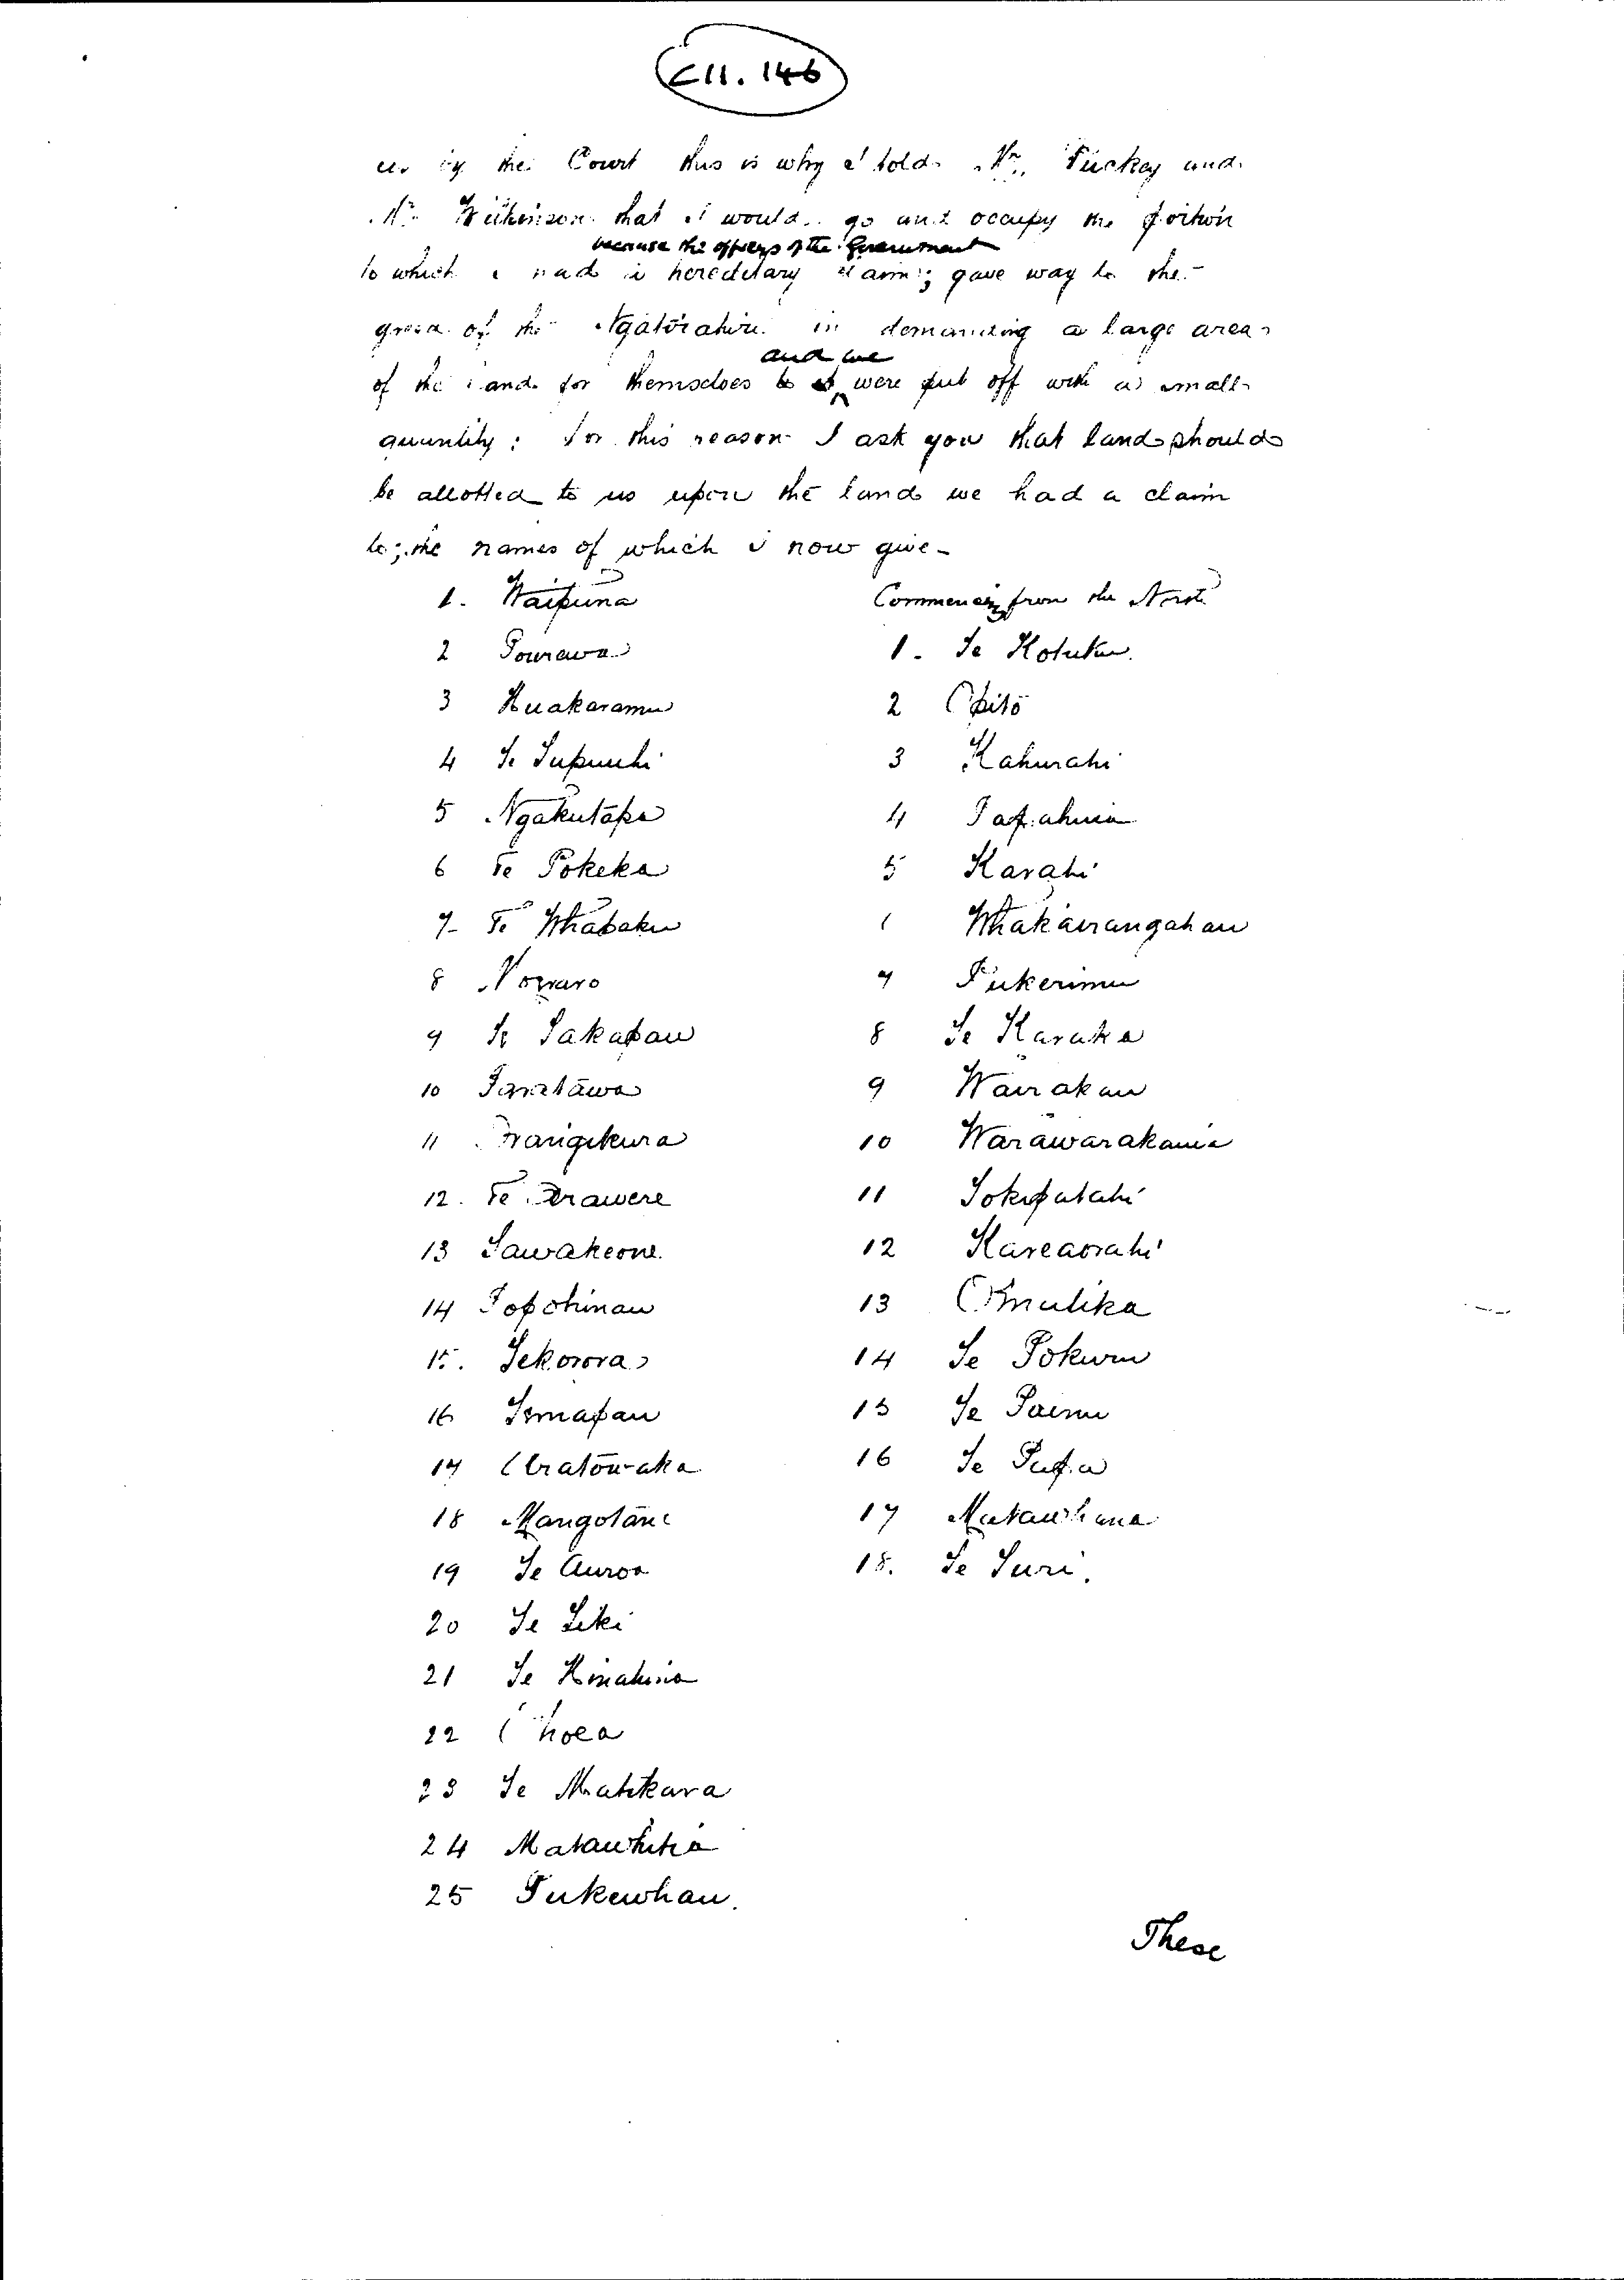 C11. 146
us by the Court this is why I told Mr. Puckey and
Mr. Wilkinson that I would go and occupy the portion
because the officers of the Government
to which I had a hereditary claim; gave way to the
greed of the Ngatirahiri in demanding a large area
and we
of the land for themselves were put off with a small
quantity: for this reason I ask you that land should
be allotted to us upon the land we had a claim
to; the names of which I now give -
1. Waipuna
2 Pourewa
3 Huakaramu
4
5 Ngakutapa
6 Te Pokeka
7 Te Whataku
8
9 Te Takapau
10
11 Rangikura
12. Te Arawere
13 Tawakeone
14 Topohinau
15. Tekorora
16
17
18 Mangotane
19 Te Auroa
20 Te Tiki
21 Te Hinahina
22
23 Te Matikara
24
25 Pukewhau.
Commencing from the North
1. Te Kotuku.
2 Opito
3 Kahurahi
4 Papahuia
5 Karahi
Whakairangahau
7 Pukerimu
8 Te Karaka
9 Wairakau
10 Warawarakauia
11 Tokipatahi
12 Kareaorahi
13
14 Te Pokuru
15
16 Te Pupu
17 Matawhana
18. Te Turi.
These